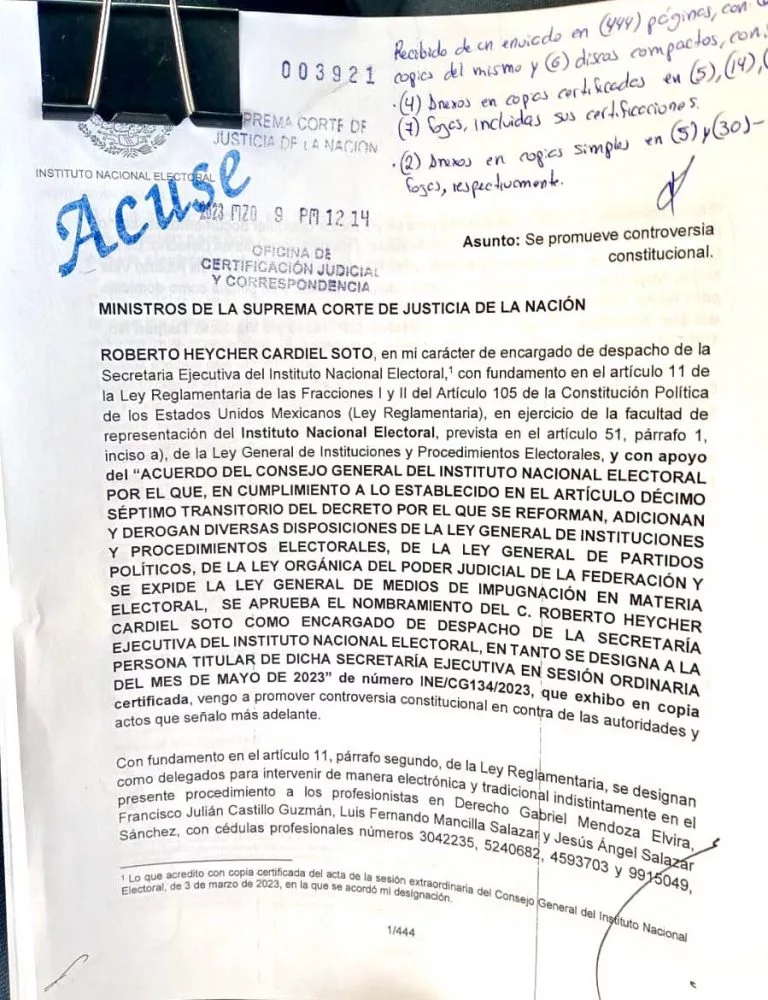 Recibido de un enviado en (444) páginas, con
copias del mismo y (6) discos compactos, con
003921
· (4) Anexos en copias certificadas en (5), (14),
(7) fojas, incluidas sus certificaciones.
SUPREMA CORTE DE
JUSTICIA DE LA NACIÓN
· (2) Anexos en copias simples en (5) y (30)-
fojas, respectivamente.
INSTITUTO NACIONAL ELECTORAL
Acuse
2023 MZO 9 PM 12 14
OFICINA DE
CERTIFICACIÓN JUDICIAL
Y CORRESPONDENCIA
Asunto: Se promueve controversia
constitucional.
MINISTROS DE LA SUPREMA CORTE DE JUSTICIA DE LA NACIÓN
ROBERTO HEYCHER CARDIEL SOTO, en mi carácter de encargado de despacho de la
Secretaria Ejecutiva del Instituto Nacional Electoral,¹ con fundamento en el artículo 11 de
la Ley Reglamentaria de las Fracciones I y II del Artículo 105 de la Constitución Política
de los Estados Unidos Mexicanos (Ley Reglamentaria), en ejercicio de la facultad de
representación del Instituto Nacional Electoral, prevista en el artículo 51, párrafo 1,
inciso a), de la Ley General de Instituciones y Procedimientos Electorales, y con apoyo
del “ACUERDO DEL CONSEJO GENERAL DEL INSTITUTO NACIONAL ELECTORAL
POR EL QUE, EN CUMPLIMIENTO A LO ESTABLECIDO EN EL ARTÍCULO DÉCIMO
SÉPTIMO TRANSITORIO DEL DECRETO POR EL QUE SE REFORMAN, ADICIONAN
Y DEROGAN DIVERSAS DISPOSICIONES DE LA LEY GENERAL DE INSTITUCIONES
Y PROCEDIMIENTOS ELECTORALES, DE LA LEY GENERAL DE PARTIDOS
POLÍTICOS, DE LA LEY ORGÁNICA DEL PODER JUDICIAL DE LA FEDERACIÓN Y
SE EXPIDE LA LEY GENERAL DE MEDIOS DE IMPUGNACIÓN EN MATERIA
ELECTORAL, SE APRUEBA EL NOMBRAMIENTO DEL C. ROBERTO HEYCHER
CARDIEL SOTO COMO ENCARGADO DE DESPACHO DE LA SECRETARÍA
EJECUTIVA DEL INSTITUTO NACIONAL ELECTORAL, EN TANTO SE DESIGNA A LA
PERSONA TITULAR DE DICHA SECRETARÍA EJECUTIVA EN SESIÓN ORDINARIA
DEL MES DE MAYO DE 2023” de número INE/CG134/2023, que exhibo en copia
certificada, vengo a promover controversia constitucional en contra de las autoridades y
actos que señalo más adelante.
Con fundamento en el artículo 11, párrafo segundo, de la Ley Reglamentaria, se designan
como delegados para intervenir de manera electrónica y tradicional indistintamente en el
presente procedimiento a los profesionistas en Derecho Gabriel Mendoza Elvira,
Francisco Julián Castillo Guzmán, Luis Fernando Mancilla Salazar y Jesús Ángel Salazar
Sánchez, con cédulas profesionales números 3042235, 5240682, 4593703 y 9915049,
¹ Lo que acredito con copia certificada del acta de la sesión extraordinaria del Consejo General del Instituto Nacional
Electoral, de 3 de marzo de 2023, en la que se acordó mi designación.
1/444